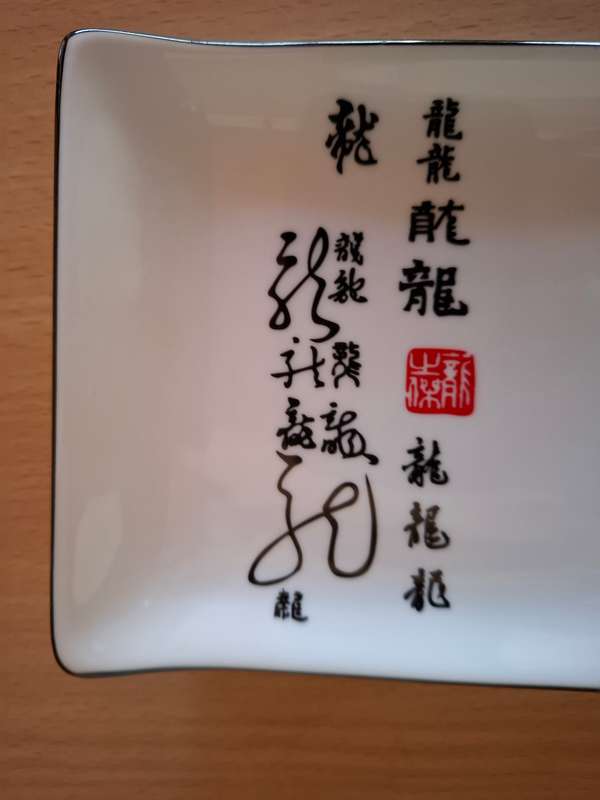 龍龍龍龍
龍
龍龍龍
龍
龍龍龍龍
龍龍龍龍龍